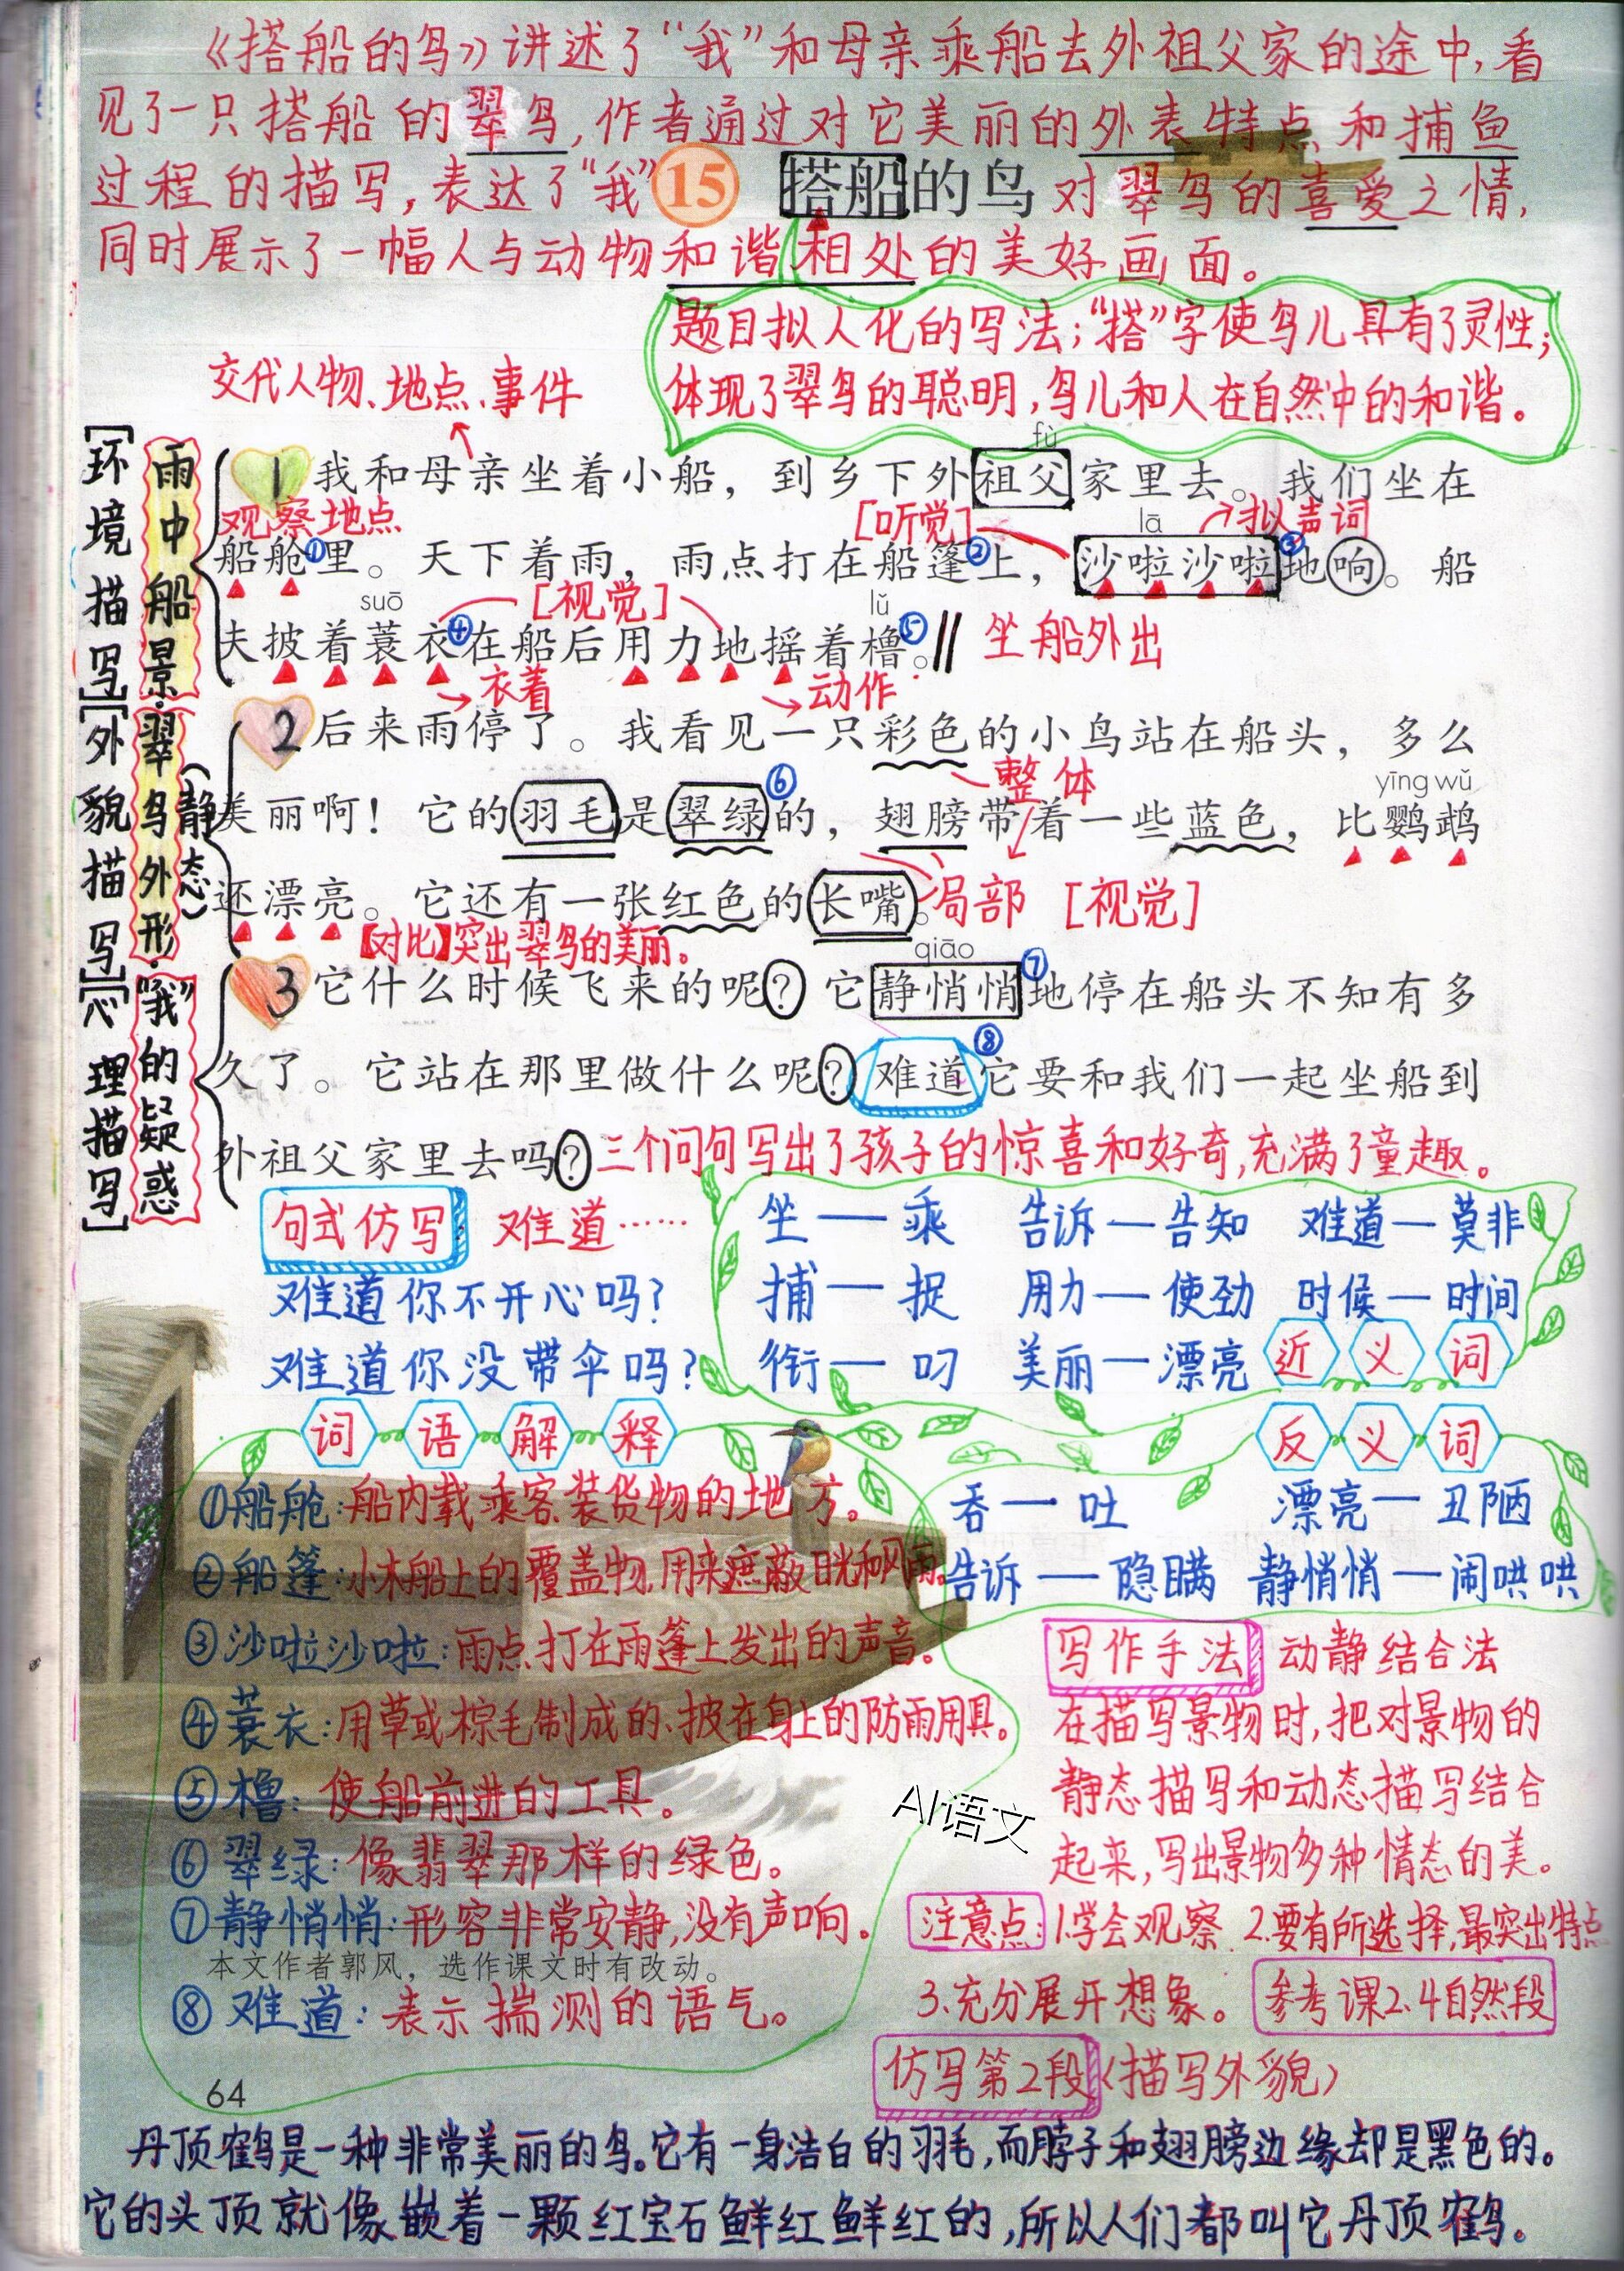 《搭船的鸟》讲述了“我”和母亲乘船去外祖父家的途中,看
见了一只搭船的翠鸟,作者通过对它美丽的外表特点和捕鱼
过程的描写,表达了“我”对翠鸟的喜爱之情,
15 搭船的鸟
同时展示了一幅人与动物和谐相处的美好画面。
题目拟人化的写法;“搭”字使鸟儿具有了灵性;
体现了翠鸟的聪明,鸟儿和人在自然中的和谐。
交代人物、地点、事件
[环境描写]
雨中船景
fù
1 我和母亲坐着小船，到乡下外祖父家里去。我们坐在
观察地点
[听觉]
lā
拟声词
船舱①里。天下着雨，雨点打在船篷②上，沙啦沙啦③地响。船
suō
[视觉]
lǔ
夫披着蓑衣④在船后用力地摇着橹⑤。‖ 坐船外出
衣着
动作
[外貌描写]
翠鸟外形
(静态)
2 后来雨停了。我看见一只彩色的小鸟站在船头，多么
整体
yīng wǔ
美丽啊！它的羽毛是翠绿⑥的，翅膀带着一些蓝色，比鹦鹉
还漂亮。它还有一张红色的长嘴。
局部 [视觉]
【对比】突出翠鸟的美丽。
[心理描写]
“我”的疑惑
qiāo
3 它什么时候飞来的呢？它静悄悄⑦地停在船头不知有多
久了。它站在那里做什么呢？难道⑧它要和我们一起坐船到
外祖父家里去吗？三个问句写出了孩子的惊喜和好奇,充满了童趣。
句式仿写 难道……
难道你不开心吗?
难道你没带伞吗?
坐—乘 告诉—告知 难道—莫非
捕—捉 用力—使劲 时候—时间
衔—叼 美丽—漂亮 近义词
词语解释
①船舱:船内载乘客装货物的地方。
②船篷:小木船上的覆盖物,用来遮蔽日光和风雨。
③沙啦沙啦:雨点打在雨篷上发出的声音。
④蓑衣:用草或棕毛制成的、披在身上的防雨用具。
⑤橹:使船前进的工具。
⑥翠绿:像翡翠那样的绿色。
⑦静悄悄:形容非常安静,没有声响。
本文作者郭风，选作课文时有改动。
⑧难道:表示揣测的语气。
反义词
吞—吐 漂亮—丑陋
告诉—隐瞒 静悄悄—闹哄哄
写作手法 动静结合法
在描写景物时,把对景物的
静态描写和动态描写结合
起来,写出景物多种情态的美。
AI语文
注意点: 1.学会观察 2.要有所选择,最突出特点
3.充分展开想象。 参考课2.4自然段
仿写第2段(描写外貌)
64
丹顶鹤是一种非常美丽的鸟。它有一身洁白的羽毛,而脖子和翅膀边缘却是黑色的。
它的头顶就像嵌着一颗红宝石鲜红鲜红的,所以人们都叫它丹顶鹤。